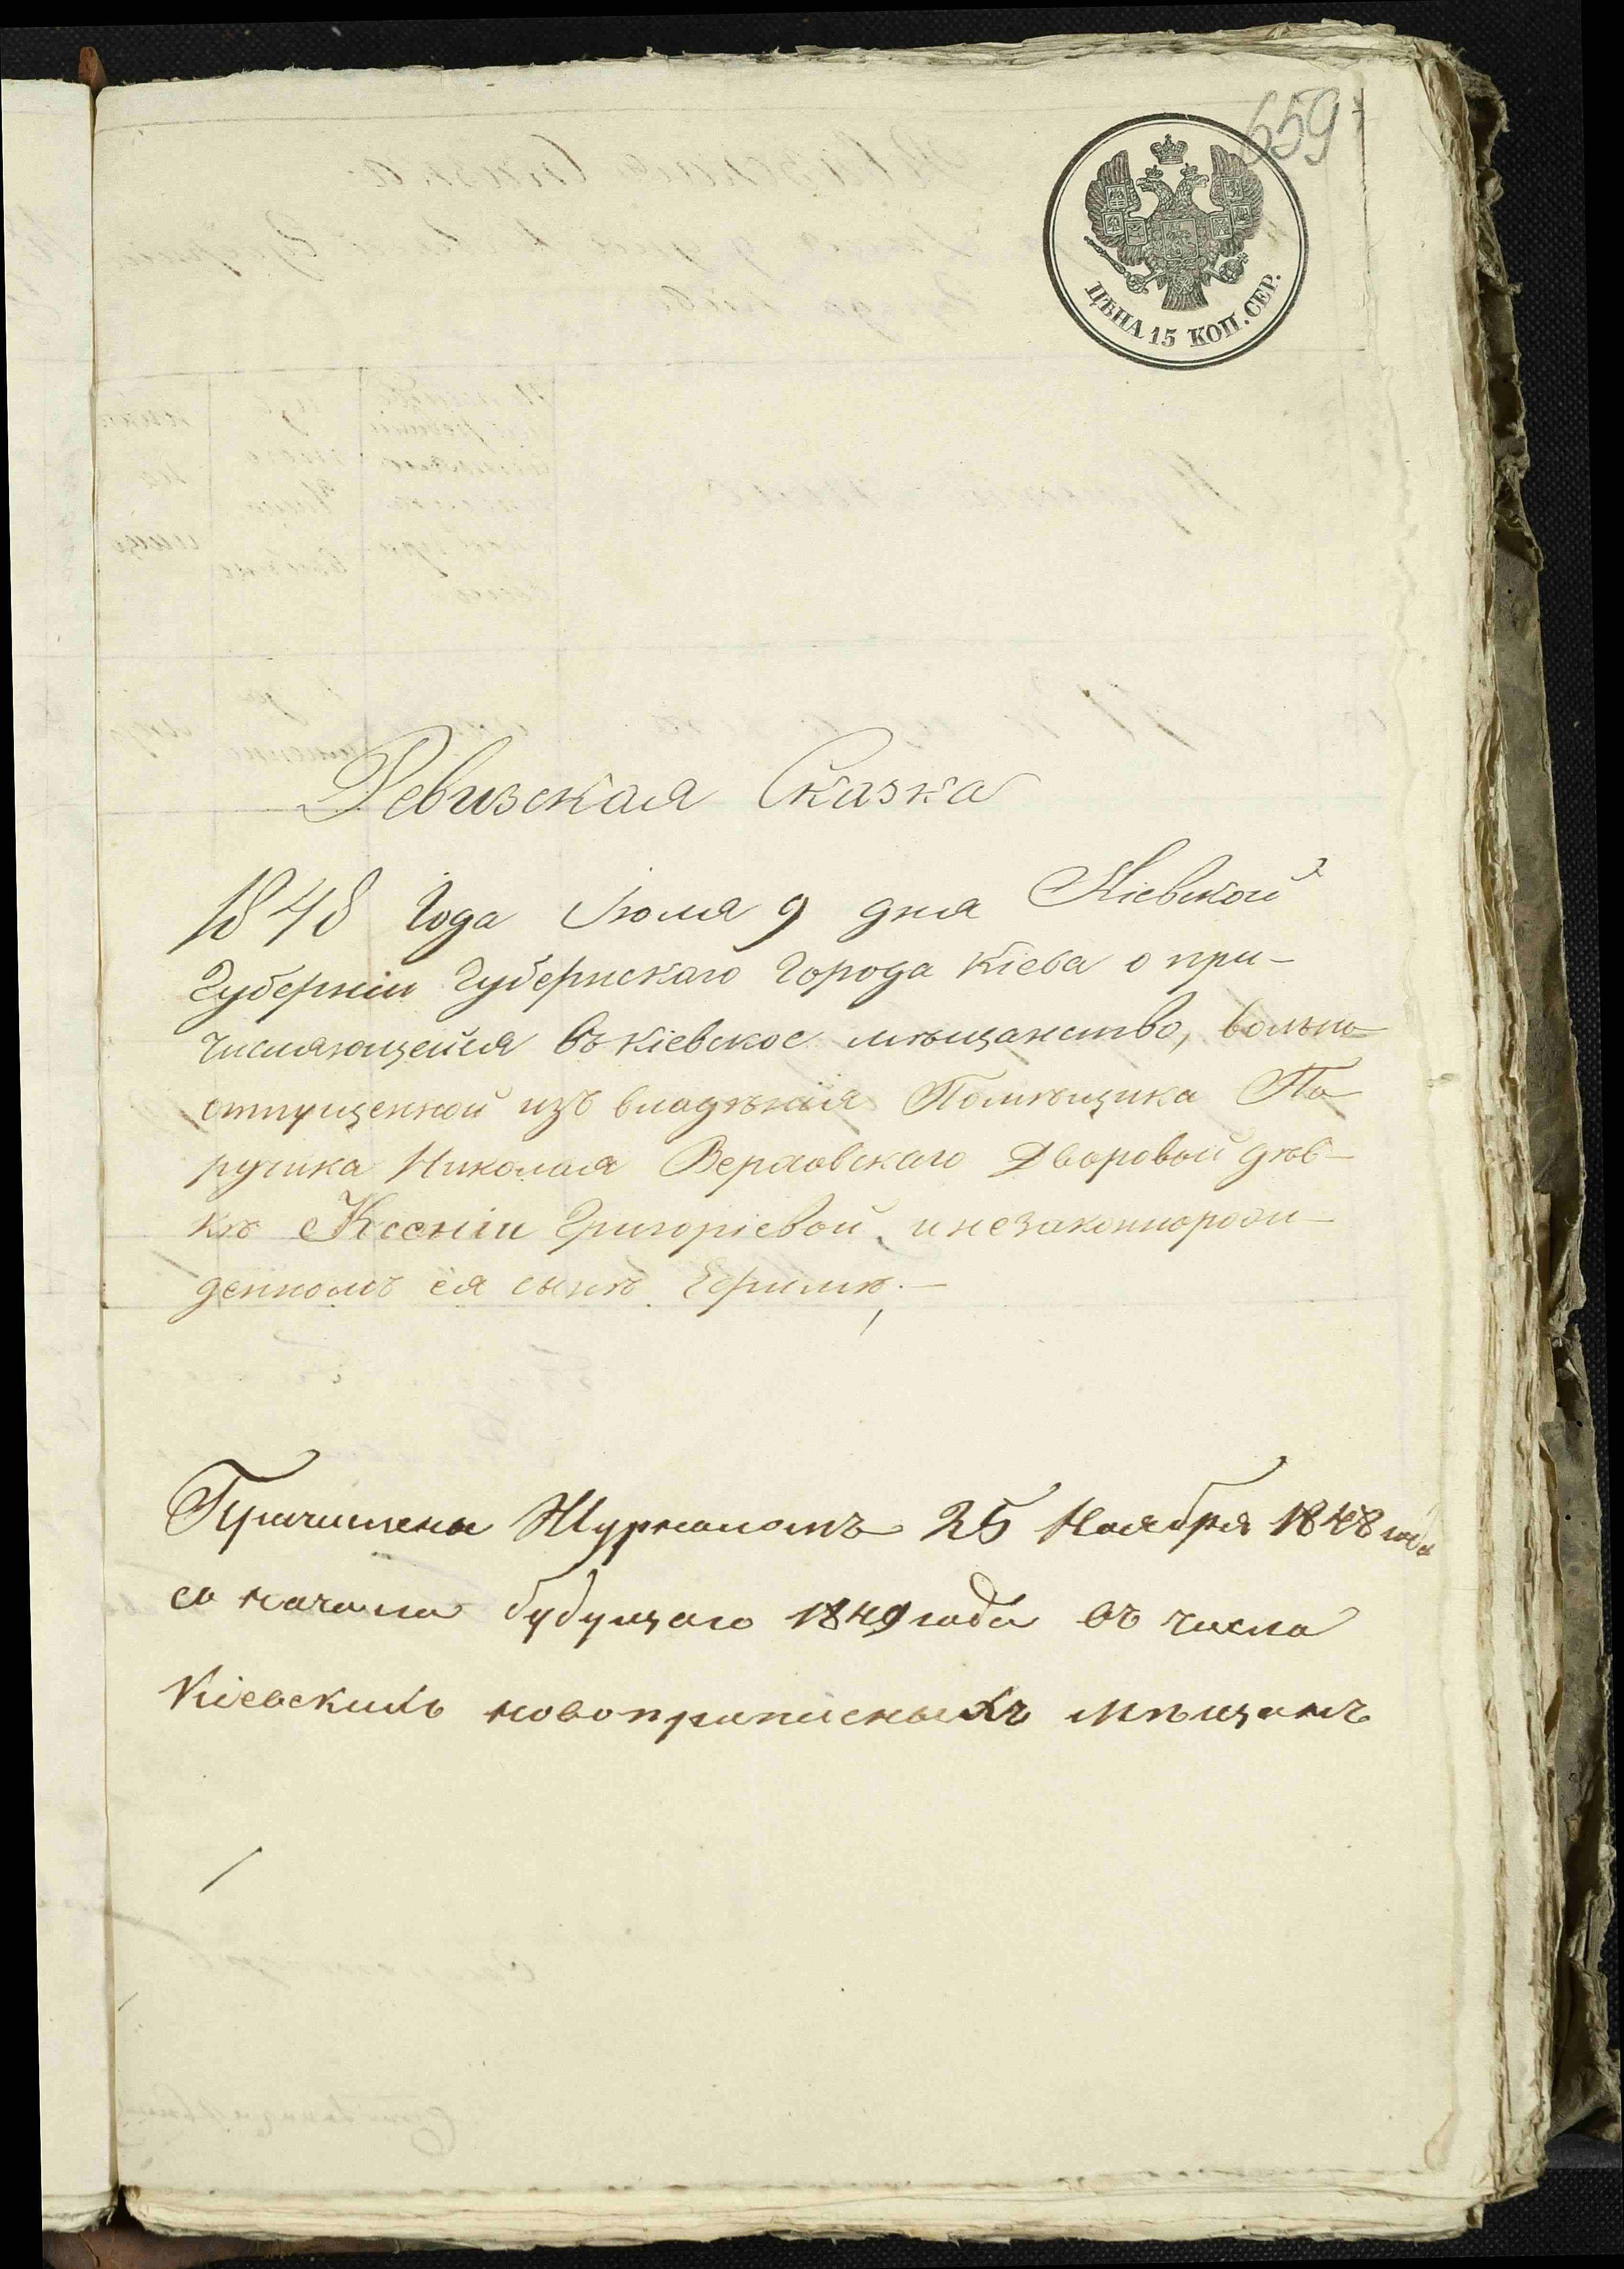 659
ЦѢНА 15 КОП. СЕР.
Ревизская Сказка
1848 Года Іюля 9 дня Кіевской
Губерніи Губернскаго Города Кіева о при-
числяющейся въ Кіевское мѣщанство, вольно
отпущенной изъ владѣнія Помѣщика По
ручика Николая Верховскаго Дворовой дѣв-
кѣ Ксеніи Григоріевой, и незаконнорож-
денномъ ея сынѣ Ефимѣ.-
Причислена Журналомъ 25 Ноября 1848 года
со начала будущаго 1849 года въ число
Кіевскихъ новоприписныхъ мѣщанъ